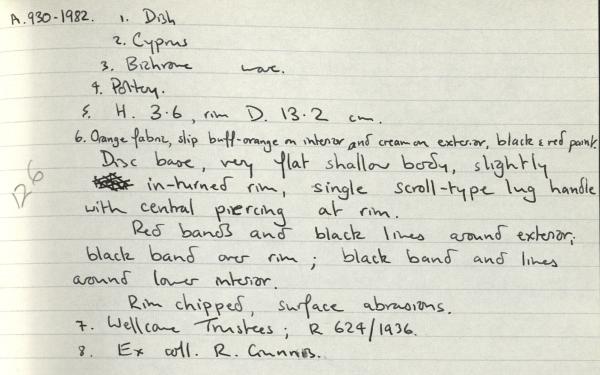 A.930-1982. 1. Dish
2. Cyprus
3. Bichrome ware.
4. Pottery.
5. H. 3.6, rim D. 13.2 cm.
6. Orange fabric, slip buff-orange on interior and cream on exterior, black & red paint.
Disc base, very flat shallow body, slightly
in-turned rim, single scroll-type lug handle
with central piercing at rim.
Red bands and black lines around exterior;
black band over rim; black band and lines
around lower interior.
Rim chipped, surface abrasions.
7. Wellcome Trustees; R 624/1936.
8. Ex coll. R. Gunnis.
126